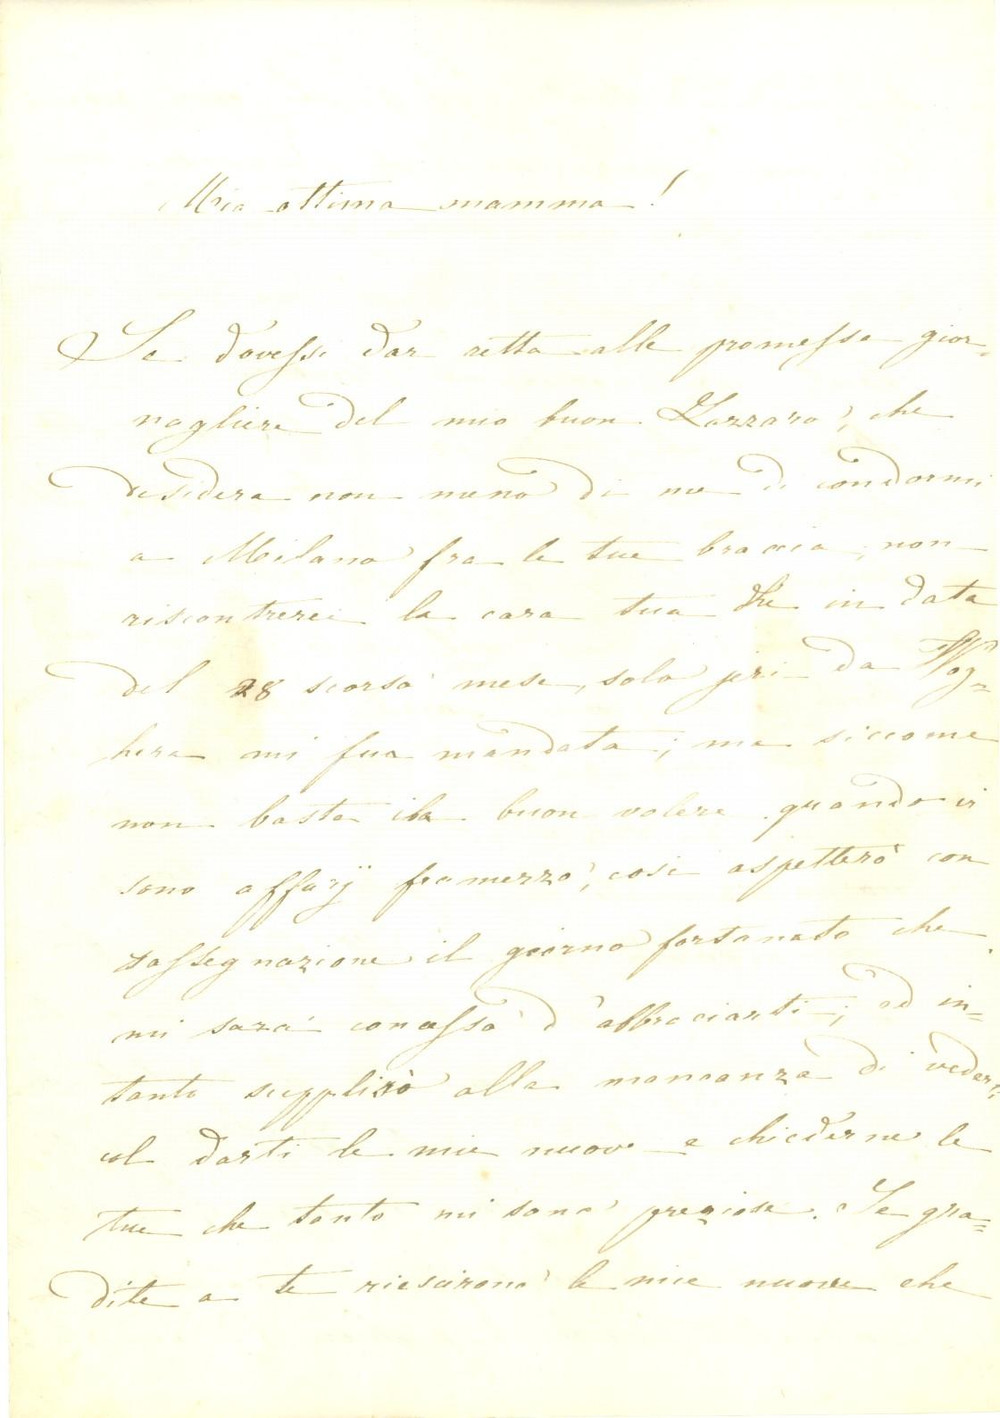 Mia ottima mamma!
Se dovessi dar retta alle promesse gior=
nagliere del mio buon Lazzaro, che
desidera non meno di me di condormi
a Milano fra le tue braccia, non
riscontrerei la cara tua in data
del 28 scorso mese, solo jeri da Vog=
hera mi fua mandata; ma siccome
non basta il buon volere quando vi
sono affarj framezzo, così aspetterò con
rassegnazione il giorno fortunato che
mi sarà concesso d'abbracciarti; ed in=
tanto supplirò alla mancanza di vederti
col darti le mie nuove e chiederne le
tue che tanto mi sono preziose. Se gra=
dite a te riescirono le mie nuove che